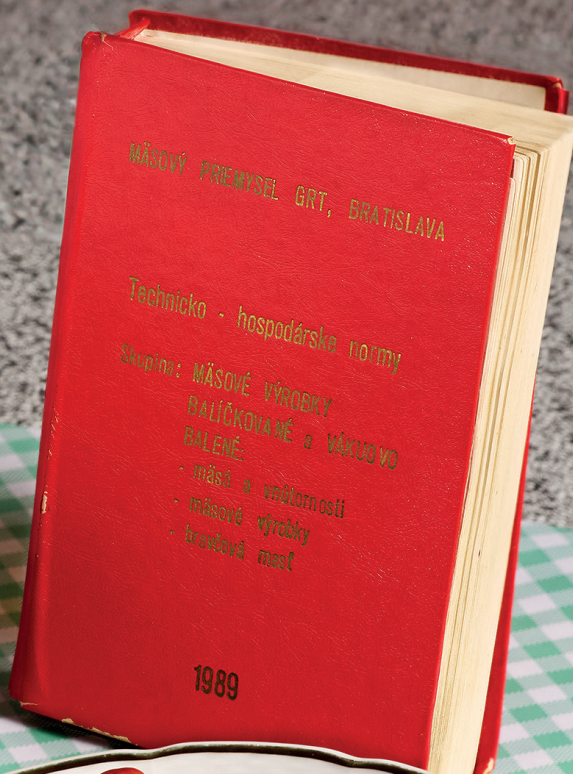 MÄSOVÝ PRIEMYSEL GRT, BRATISLAVA
Technicko - hospodárske normy
Skupina: MÄSOVÉ VÝROBKY
BALÍČKOVANÉ a VÁKUOVO
BALENÉ:
- mäsá a vnútornosti
- mäsové výrobky
- bravčová masť
1989